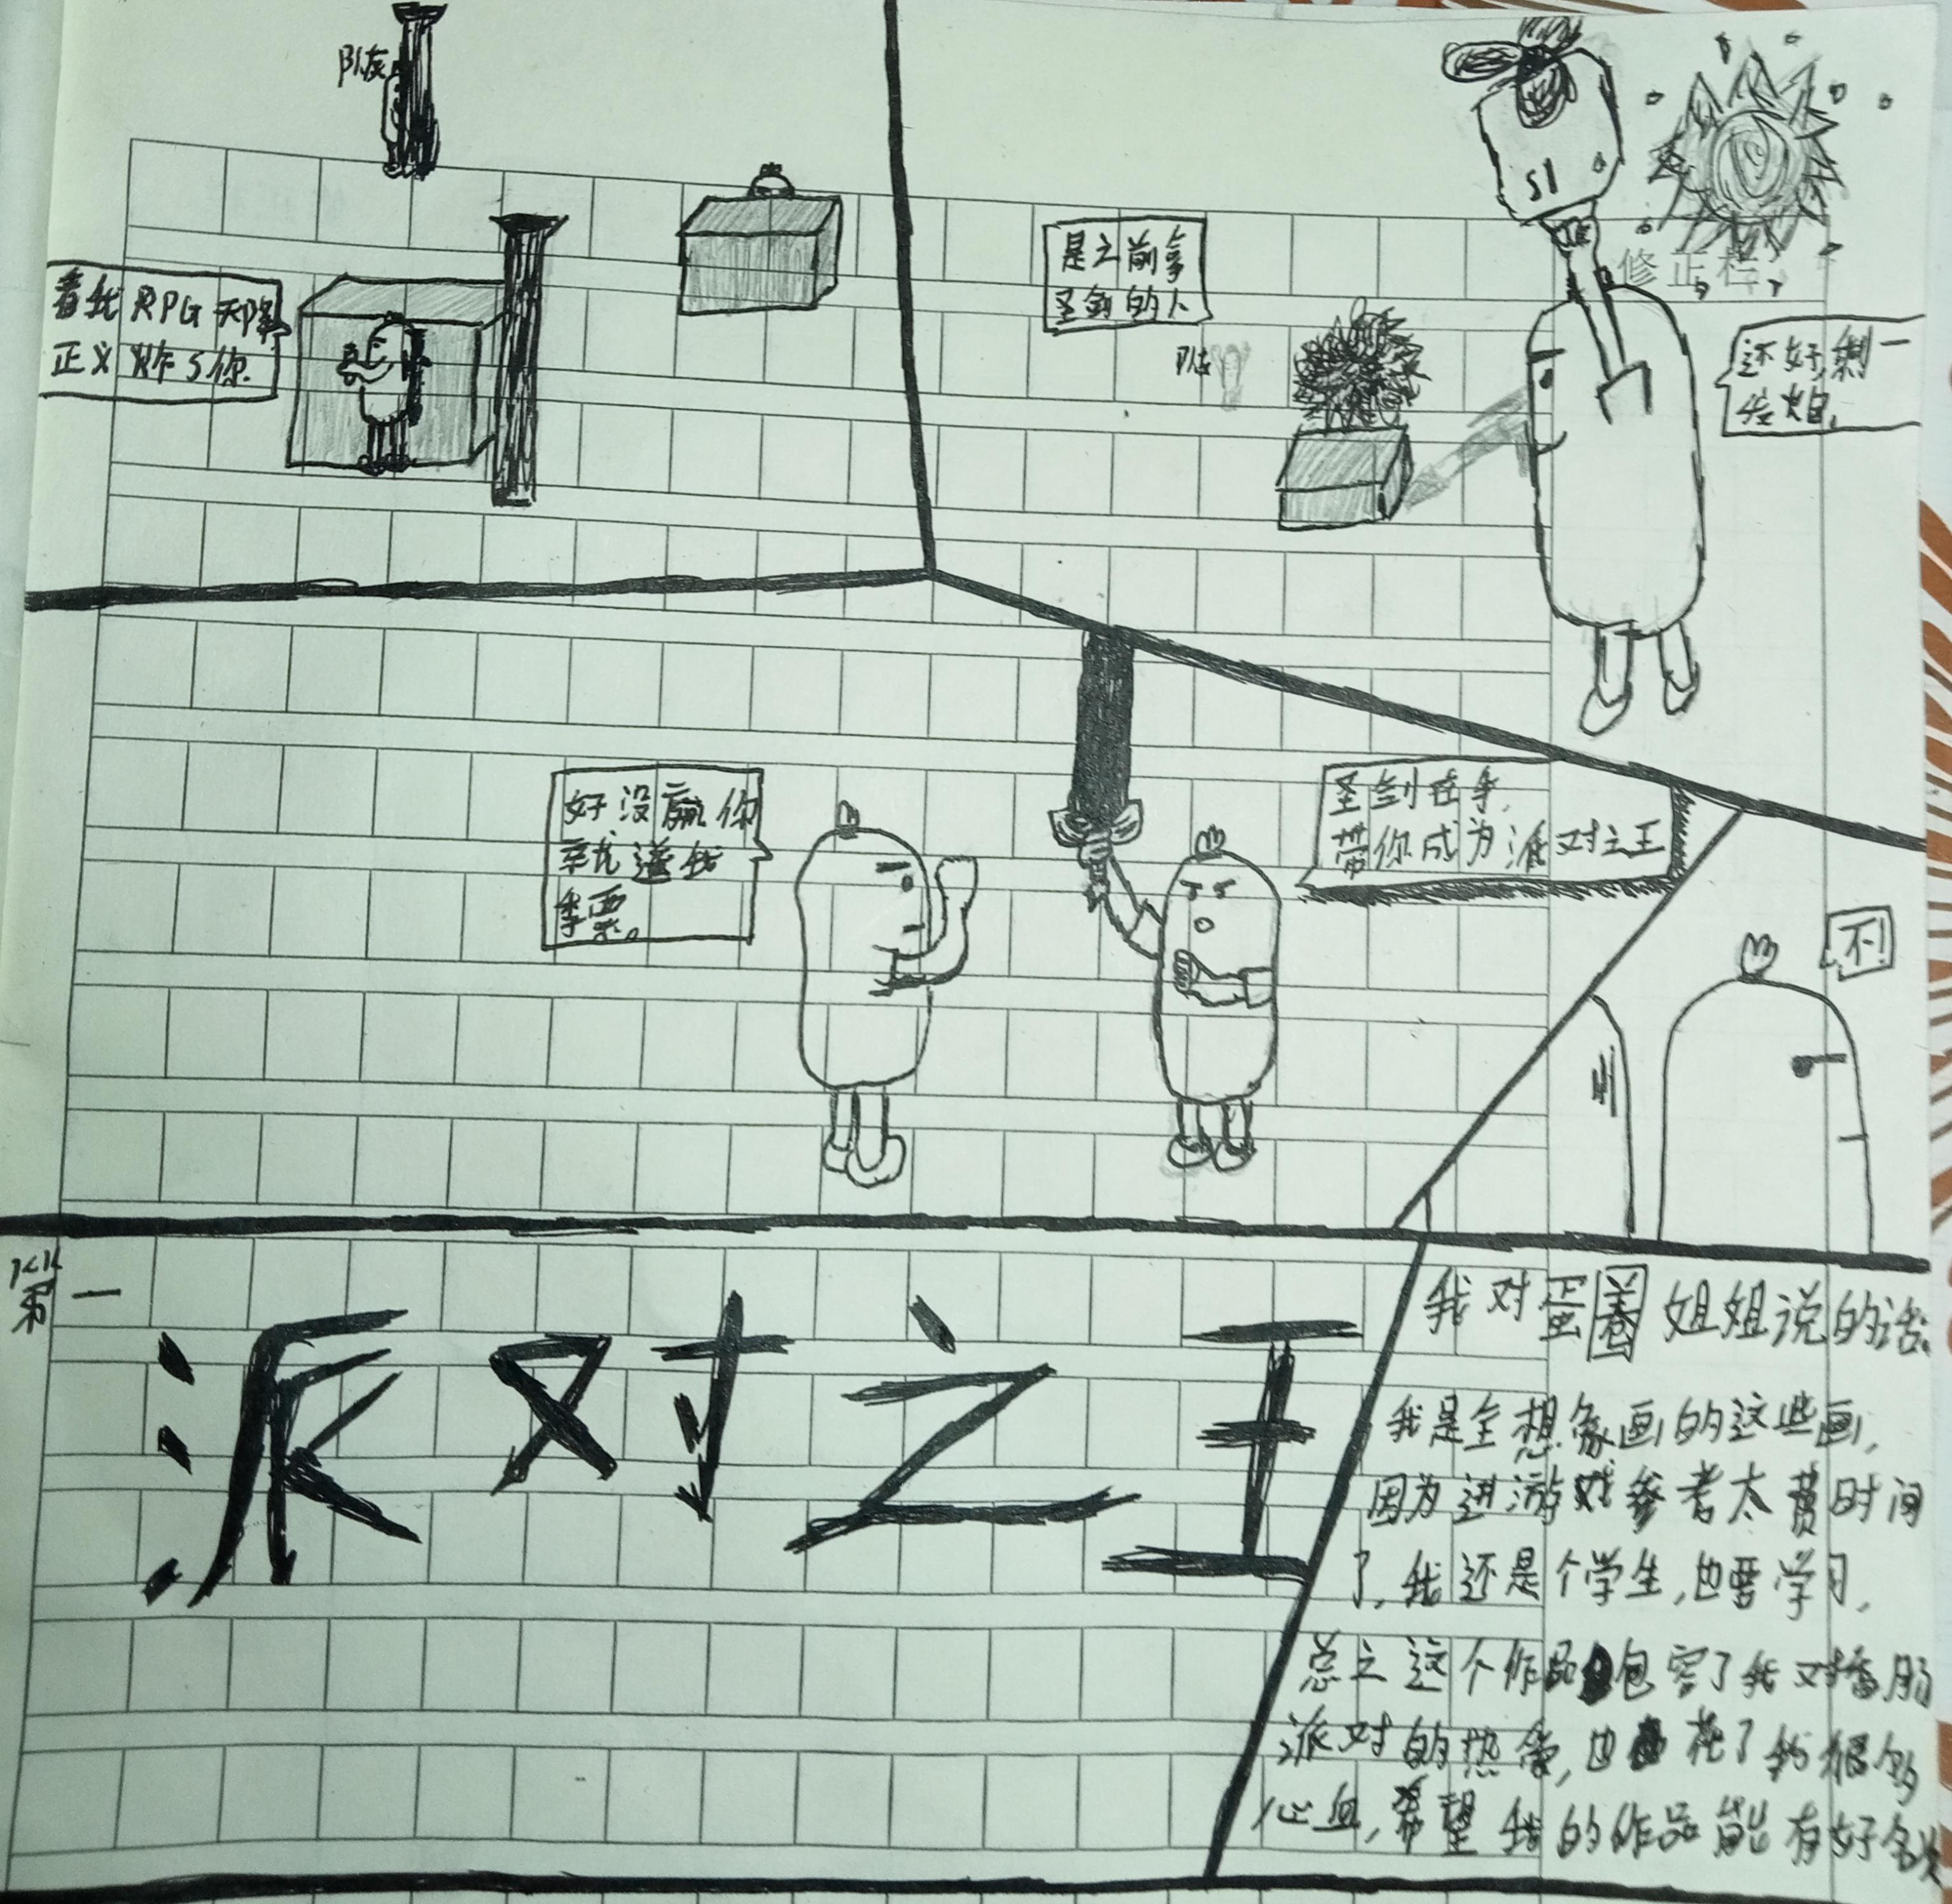 队友
看我RPG天降
正义炸S你
是之前拿
圣剑的人
队友
S1
修正栏
还好,剩一
发炮,
好没赢你
就送我
季票。
圣剑在手,
带你成为派对之王
不!
第一
派对之王
我对蛋圈姐姐说的话:
我是全想象画的这些画,
因为进游戏参考太费时间
了,我还是个学生,也要学习,
总之这个作品包容了我对香肠
派对的热爱,也花了我很多
心血,希望我的作品能有好名次